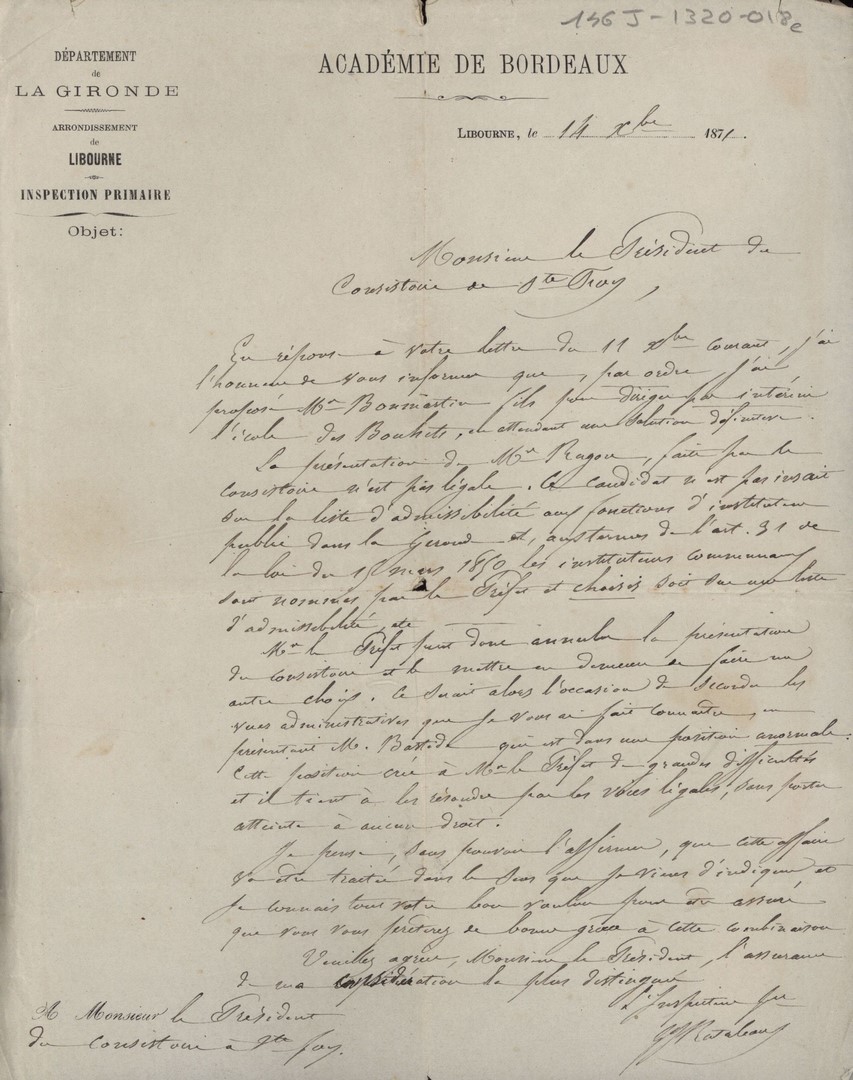 146 J - 1320-018e
DÉPARTEMENT
de
LA GIRONDE
ARRONDISSEMENT
de
LIBOURNE
INSPECTION PRIMAIRE
Objet:
ACADÉMIE DE BORDEAUX
LIBOURNE, le 14 xbre 1871.
Monsieur le Président du
Consistoire de Ste Foy,
En réponse à votre lettre du 11 xbre courant, j'ai
l'honneur de vous informer que, par ordre, j'ai
proposé Mr Bonmartin fils pour diriger par intérim
l'école des Bouhets, en attendant une solution définitive.
La présentation de Mr Ragon, faite par le
consistoire n'est pas légale. Ce candidat n'est pas inscrit
sur la liste d'admissibilité aux fonctions d'instituteur
public dans la Gironde et, aux termes de l'art. 31 de
la loi du 15 mars 1850 les instituteurs communaux
sont nommés par le Préfet et choisis soit sur une liste
d'admissibilité, etc
Mr le Préfet peut donc annuler la présentation
du consistoire et le mettre en demeure de faire un
autre choix. Ce serait alors l'occasion de seconder les
vues administratives que je vous ai fait connaître, en
présentant M. Bastide qui est dans une position anormale.
Cette position crée à Mr le Préfet de grandes difficultés
et il tient à les résoudre par les voies légales, sans porter
atteinte à aucun droit.
Je pense, sans pouvoir l'affirmer, que cette affaire
va être traitée dans le sens que je viens d'indiquer et
je connais tout votre bon vouloir pour être assuré
que vous vous prêterez de bonne grâce à cette combinaison
Veuillez agréer, Monsieur le Président, l'assurance
de ma considération la plus distinguée
L'Inspecteur
A Monsieur le Président
du Consistoire à Ste foy.